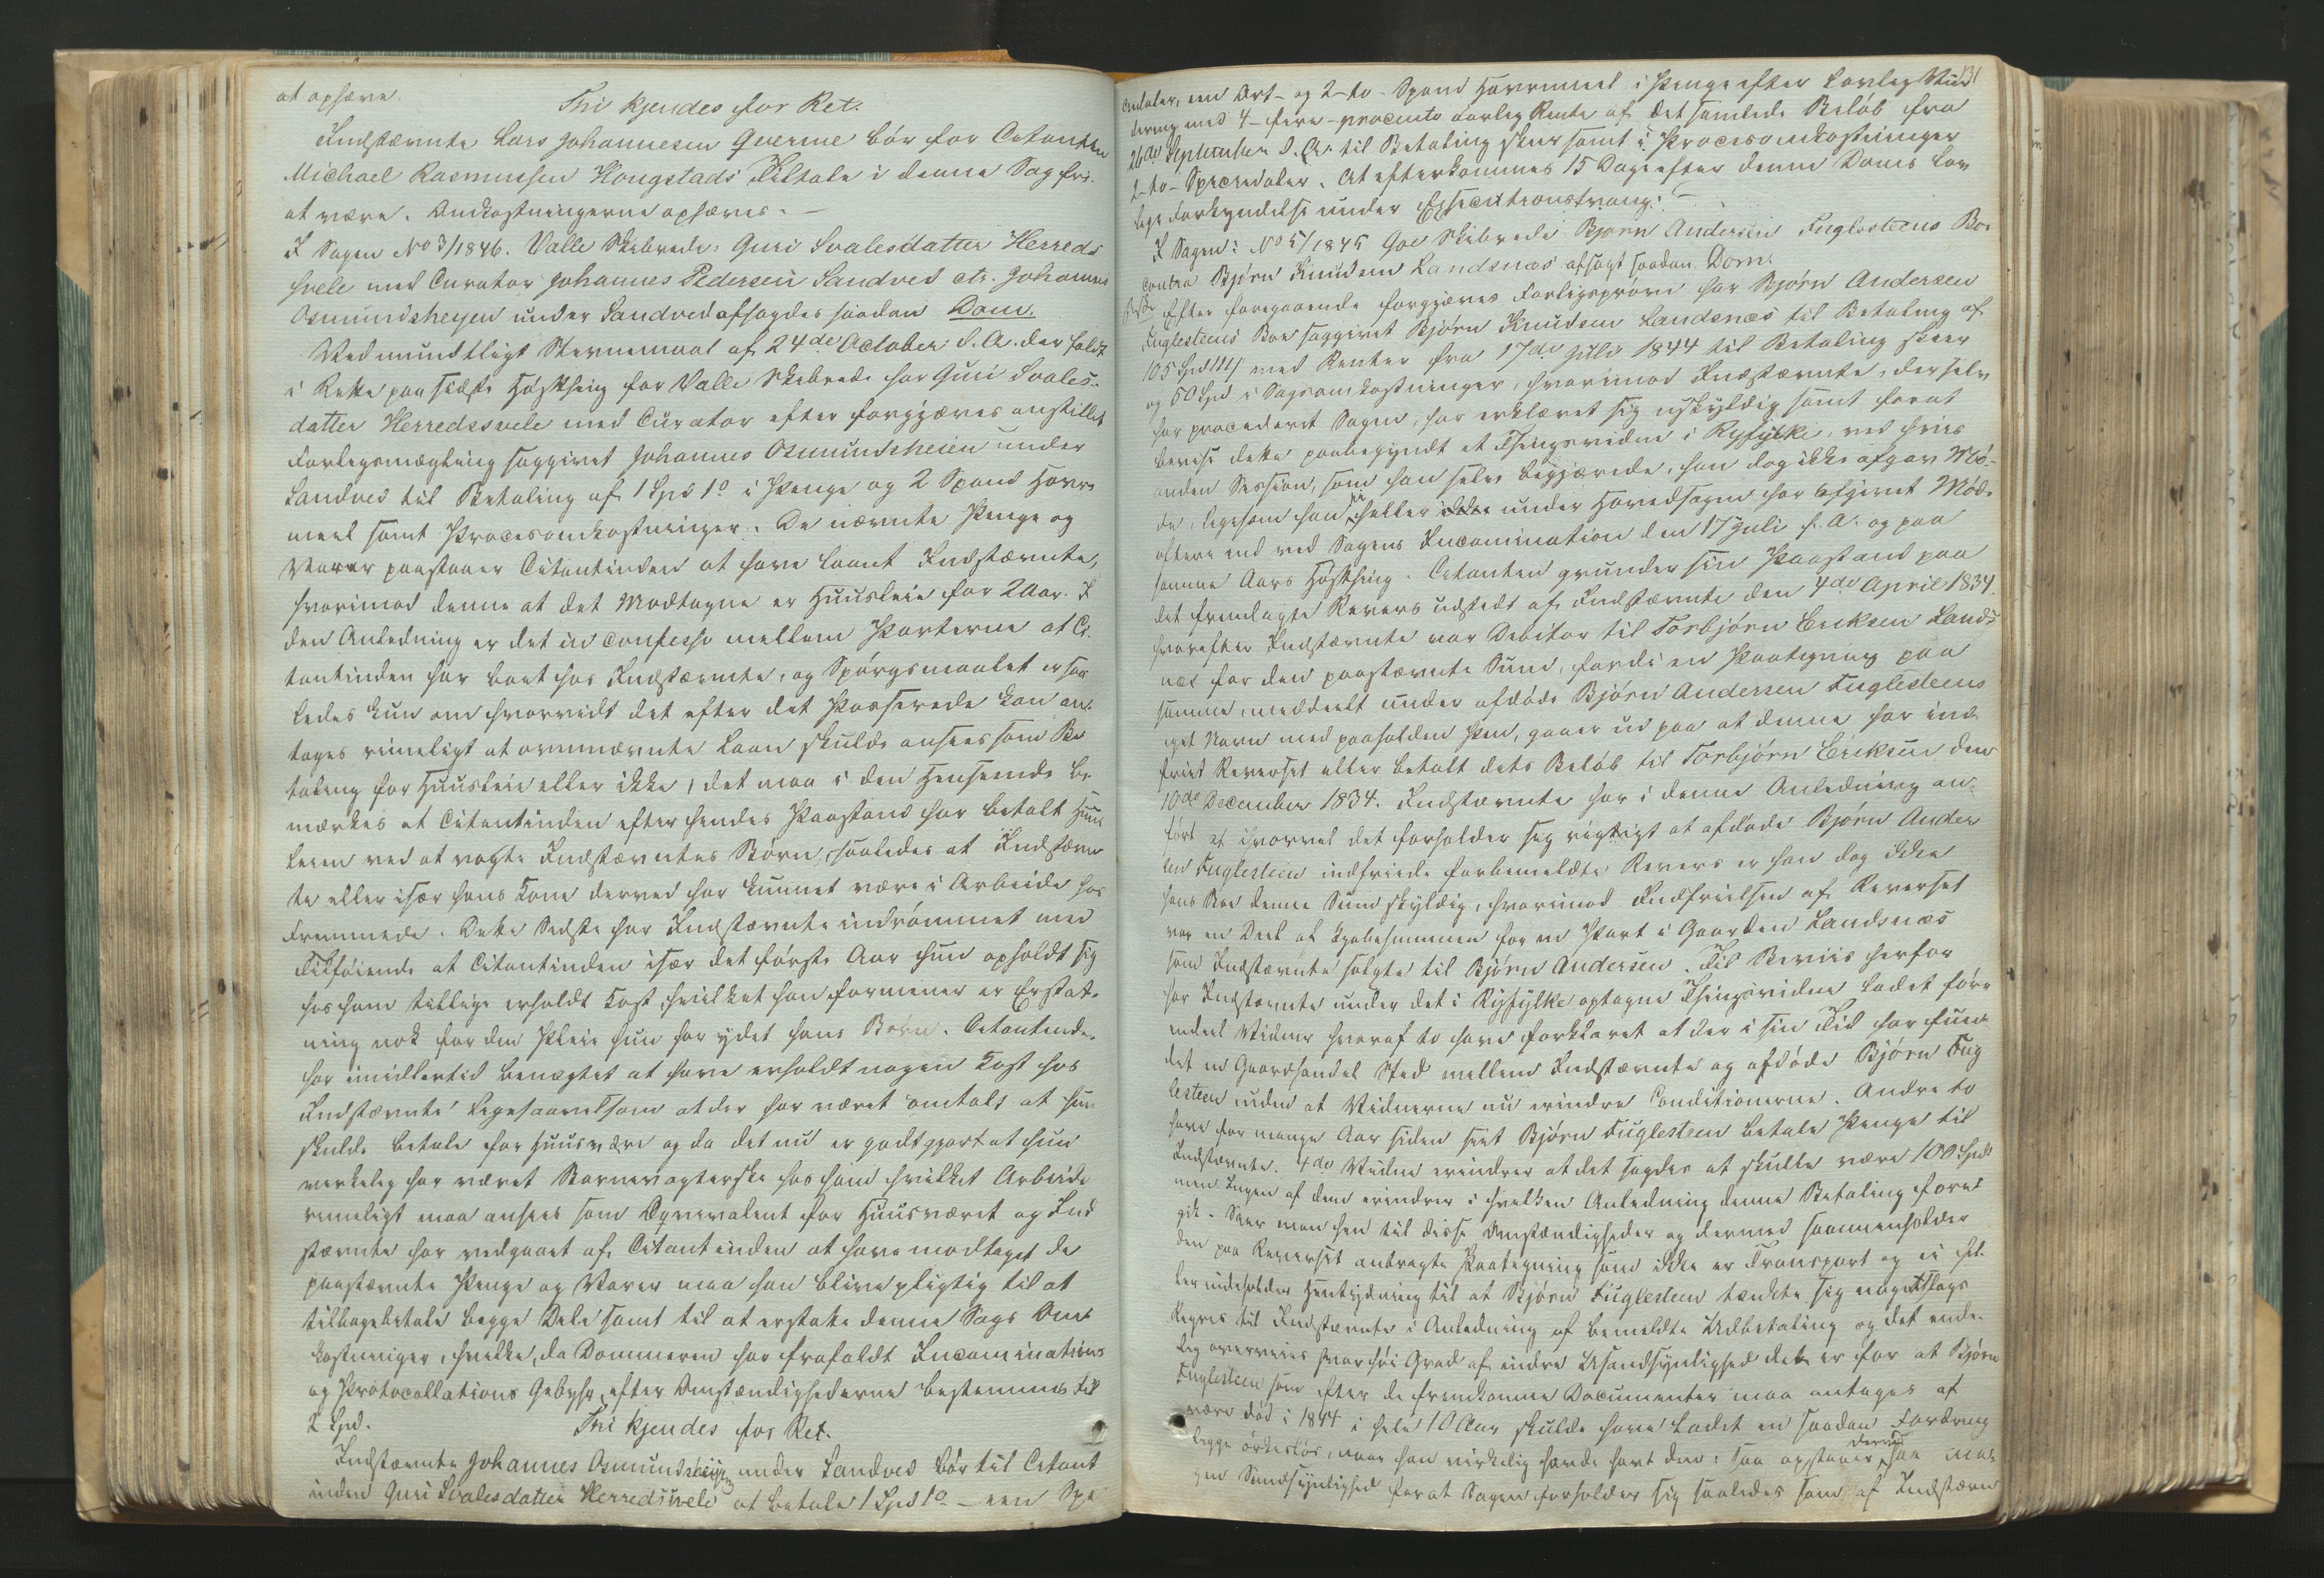 at ophæve.
Thi kjendes for Ret.
Indstævnte Lars Johannesen Querme bör for Citanten
Michael Rasmussen Hougstads Tiltale i denne Sag fri
at være. Omkostningerne ophæves. —
I Sagen No 3/1846. Valle Skibrede: Guri Soalesdatter Herreds
hvele med Curator Johannes Pedersen Sandved ctr. Johannes
Osmundsheyen under Sandved afsagdes saadan Dom.
Ved mundtligt Stevnemaal af 24de October d. A. der faldt
i Rette paa sidste Høstthing for Valle Skibrede har Guri Soales-
datter Herredssvele med Curator efter forgjæves anstillet
Forligsmægling saggivet Johannes Osmundsheien under
Sandved til Betaling af 1 Spd 1o i Penge og 2 Spand Havre
meel samt Procesomkostninger. De nævnte Penge og
Varer paastaaer Citantinden at have laant Indstævnte,
hvorimod denne at det Modtagne er Huusleie for 2 Aar. I
den Anledning er det in confesso mellem Parterne at Ci-
tantinden har boet hos Indstævnte, og Spörgsmaalet er saa
ledes kun om hvorvidt det efter det Passerede kan an-
tages rimeligt at ovennævnte Laan skulde ansees som Be
taling for Huusleie eller ikke, det maa i den Henseende be-
mærkes at Citantinden efter hendes Paastand har betalt Huus
leien ved at vogte Indstævntes Börn, saaledes at Indstævn
te eller især hans Kone derved har kunnet være i Arbeide hos
Fremmede. Dette Sidste har Indstævnte indrömmet med
Tilföiende at Citantinden især det förste Aar hun opholdt sig
hos ham tillige erholdt Kost, hvilket han formener er Erstat-
ning nok for den Pleie hun har ydet hans Börn. Citantinden
har imidlertid benægtet at have erholdt nogen Kost hos
Indstævnte ligesaavelsom at der har været omtalt at hun
skulde betale for Huusvære og da det nu er godtgjort at hun
virkelig har været Barnevogterske hos ham hvilket Arbeide
rimeligt maa ansees som Æqvivalent for Huusværet og Ind
stævnte har vedgaaet af Citantinden at have modtaget de
paastævnte Penge og Varer maa han blive pligtig til at
tilbagebetale begge Dele samt til at erstatte denne Sags Om-
kostninger, hvilke, da Dommeren har frafaldt Incaminations
og Protocollations Gebyhr, efter Omstændighederne bestemmes til
2 Spd.
Thi kjendes for Ret.
Indstævnte Johannes Osmundsheijen under Sandved bör til Citant
inden Guri Soalesdatter Herredsvele at betale 1 Spd 1o — een Spe
131
ciedaler, een Ort- og 2-to-Spand Havremeel i Penge efter lovlig Vur
dering med 4-fire-procento aarlig Rente af det samlede Belöb fra
26de September d. A. til Betaling skeer samt i Procesomkostninger
2-to-Speciedaler. At efterkommes 15 Dage efter denne Doms lov
lige Forkyndelse under Executionstvang. —
I Sagen: No 5/1845 Goe Skibrede Bjørn Andersen Fuglesteens Bo
contra Björn Knudsen Landsnæs afsagt saadan Dom:
Efter foregaaende forgjæves Forligspröve har Björn Andersen
Fuglesteens Boe saggivet Björn Knudsen Landsnæs til Betaling af
105 Spd med Renter fra 17de Juli 1844 til Betaling skeer
og 50 Spd i Sagsomkostninger, hvorimod Indstævnte, der selv
har procederet Sagen, har erklæret sig uskyldig samt forat
bevise dette paabegyndt et Thingsvidne i Ryfylke, ved hvis
anden Session, som han selv begjærede, han dog ikke afgav Mö-
de, ligesom han ei heller under Hovedsagen har afgivet Möde
oftere end ved Sagens Incamination den 17 Juli f. A. og paa
samme Aars Høstthing. Citanten grunder sin Paastand paa
det fremlagte Revers udstedt af Indstævnte den 4de April 1834.
hvorefter Indstævnte var Debitor til Torbjörn Eriksen Lands-
næs for den paastævnte Sum, fordi en Paategning paa
samme, meddeelt under afdöde Björn Andersen Fuglesteens
eget Navn med paaholden Pen, gaaer ud paa at denne har ind-
friet Reverset eller betalt dets Belöb til Torbjörn Eriksen den
10de December 1834. Indstævnte har i denne Anledning an-
fört at ihvorvel det forholder sig rigtigt at afdöde Bjørn Ander
sen Fuglesteen indfriede forbemeldte Revers er han dog ikke
hans Boe denne Sum skyldig, hvorimod Indfrielsen af Reverset
var en Deel af Kjøbesummen for en Part i Gaarden Landsnæs
som Indstævnte solgte til Björn Andersen. Til Beviis herfor
har Indstævnte under det i Ryfylke optagne Thingsvidne ladet före
endeel Vidner hvoraf to have forklaret at der i sin Tid har fun-
det en Gaardhandel Sted mellem Indstævnte og afdöde Björn Fug
lesteen uden at Vidnerne nu erindre Conditionerne. Andre to
have for mange Aar siden seet Björn Fuglesteen betale Penge til
Indstævnte. 4de Vidne erindrer at det sagdes at skulle være 100 Spd
men Ingen af dem erindrer i hvilken Anledning denne Betaling fore-
gik. Seer man hen til disse Omstændigheder og dermed sammenholder
den paa Reverset anbragte Paategning som ikke er Transport og ei hel-
ler indeholder Hentydning til at Björn Fuglesteen tænkte sig nogetslags
Regres til Indstævnte i Anledning af bemeldte Udbetaling og det ende-
lig overveies hvor höi Grad af indre Usandsynlighed det er for at Björn
Fuglesteen som efter de fremkomne Documenter maa antages at
være död i 1844 i hele 10 Aar skulde have ladet en saadan Fordring
ligge örkeslös, naar han virkelig havde havt den: saa opstaaer derved saa
gen Sandsynlighed forat Sagen forholder sig saaledes som af Indstævn